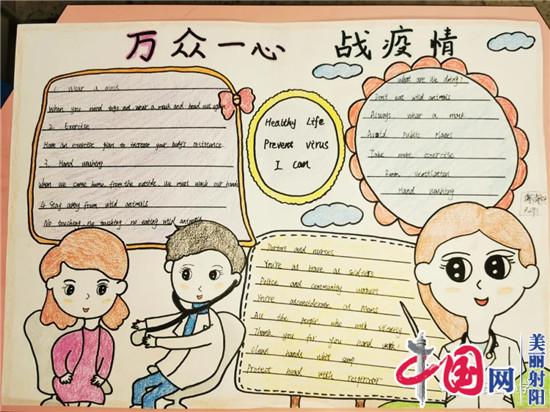 万众一心 战疫情
1. Wear a mask
When you need
wear a mask and
2. Exercise
Have an exercise plan to increase your body's resistance
3. Hand washing
When we come home from the outside we must wash our hand
4. Stay away from wild animals
No touching no touching no eating wild animals
Healthy life
Prevent virus
I can
What are we doing?
Don't eat wild animals
Always wear a mask
Avoid Public Places
Take more exercise
Room ventilation
Hand washing
Doctors and nurses
You're as brave as soldiers
Police and community workers
You're as considerate as Moms
All the people who work silently
Thank you for you hard work
Clean hands with soap
Protect hand with
中国网
美丽射阳